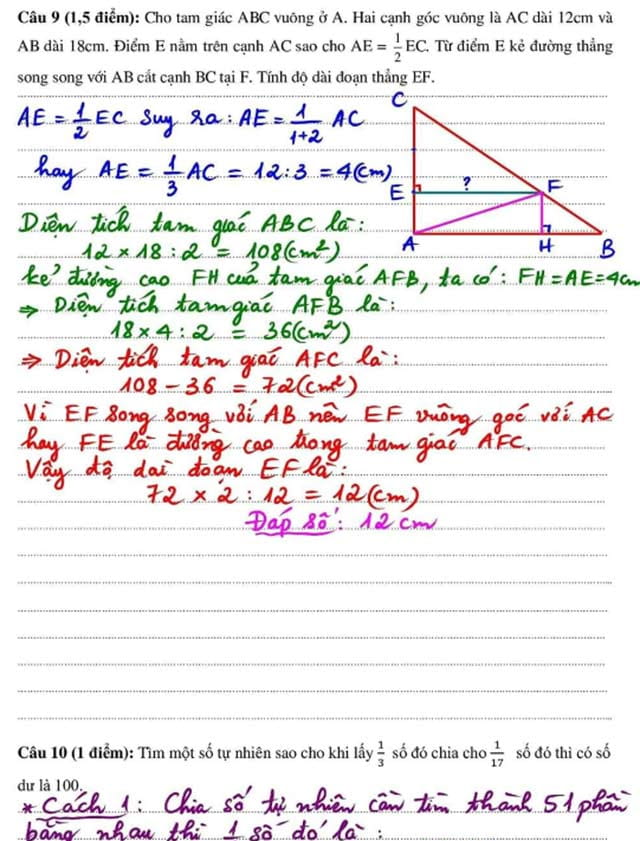 Câu 9 (1,5 điểm): Cho tam giác ABC vuông ở A. Hai cạnh góc vuông là AC dài 12cm và
AB dài 18cm. Điểm E nằm trên cạnh AC sao cho AE = 1/2 EC. Từ điểm E kẻ đường thẳng
song song với AB cắt cạnh BC tại F. Tính độ dài đoạn thẳng EF.
AE = 1/2 EC suy ra: AE = 1/(1+2) AC
hay AE = 1/3 AC = 12:3 = 4(cm)
C
E
?
F
A
H
B
Diện tích tam giác ABC là:
12 × 18 : 2 = 108(cm²)
kẻ đường cao FH của tam giác AFB, ta có: FH = AE = 4cm
⇒ Diện tích tam giác AFB là:
18 × 4 : 2 = 36(cm²)
⇒ Diện tích tam giác AFC là:
108 - 36 = 72(cm²)
Vì EF song song với AB nên EF vuông góc với AC
hay FE là đường cao trong tam giác AFC.
Vậy độ dài đoạn EF là:
72 × 2 : 12 = 12(cm)
Đáp số: 12 cm
Câu 10 (1 điểm): Tìm một số tự nhiên sao cho khi lấy 1/3 số đó chia cho 1/17 số đó thì có số
dư là 100.
* Cách 1: Chia số tự nhiên cần tìm thành 51 phần
bằng nhau thì 1/3 số đó là: